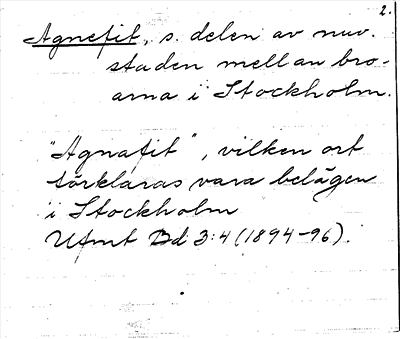 2.
Agnefit, s. delen av nuv.
staden mellan bro-
arna i Stockholm.
"Agnafit", vilken ort
förklaras vara belägen
i Stockholm
Ufmt Bd 3:4 (1894-96).